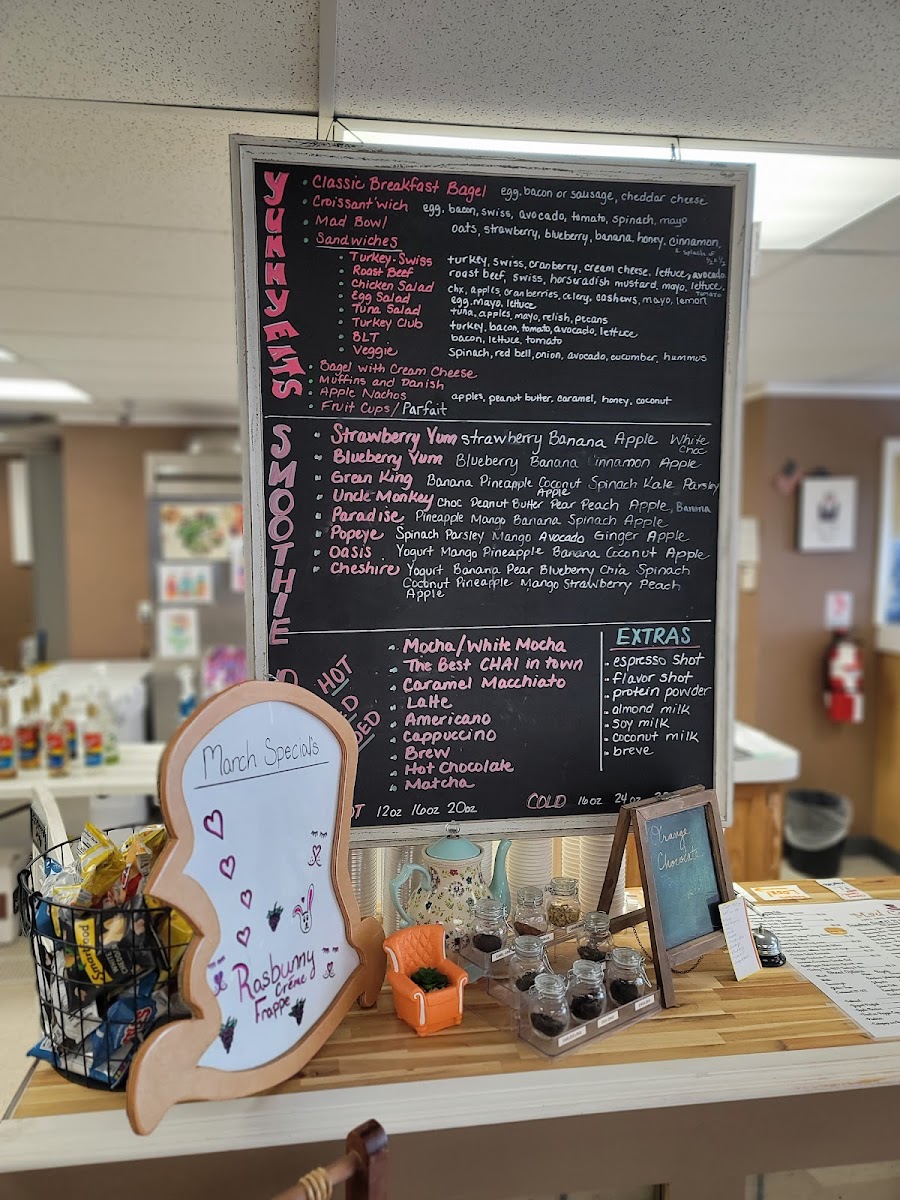 YUMMYMMS
Classic Breakfast Bagel egg, bacon or sausage, cheddar cheese
Croissant'wich egg, bacon, swiss, avocado, tomato, spinach, mayo
Mad Bowl oats, strawberry, blueberry, banana, honey, cinnamon,
splash of
Sandwiches
Turkey-Swiss turkey, swiss, cranberry, cream cheese, lettuce, avocado
Roast Beef roast beef, swiss, horseradish mustard, mayo, lettuce,
tomato
Chicken Salad chx, apples, cranberries, celery, cashews, mayo, lemon
Egg Salad egg, mayo, lettuce
Tuna Salad tuna, apples, mayo, relish, pecans
Turkey Club turkey, bacon, tomato, avocado, lettuce
BLT bacon, lettuce, tomato
Veggie Spinach, red bell, onion, avocado, cucumber, hummus
Bagel with Cream Cheese
Muffins and Danish
Apple Nachos apples, peanut butter, caramel, honey, coconut
Fruit Cups/Parfait
SMOOTHIE
Strawberry Yum strawberry Banana Apple White
Choc
Blueberry Yum Blueberry Banana Cinnamon Apple
Green King Banana Pineapple Coconut Spinach Kale Parsley
Apple
Uncle Monkey Choc Peanut Butter Pear Peach Apple, Banana
Paradise Pineapple Mango Banana Spinach Apple
Popeye Spinach Parsley Mango Avocado Ginger Apple
Oasis Yogurt Mango Pineapple Banana Coconut Apple
Cheshire Yogurt Banana Pear Blueberry Chia Spinach
Coconut Pineapple Mango Strawberry Peach
Apple
HOT
Mocha/White Mocha
The Best CHAI in town
Caramel Macchiato
Latte
Americano
Cappuccino
Brew
Hot Chocolate
Matcha
12oz 16oz 20oz
COLD 16oz 24oz
EXTRAS
espresso shot
flavor shot
protein powder
almond milk
soy milk
coconut milk
breve
March Special's
Rasbunny
Crème
Frappe
Orange
Chocolate
Smartfood